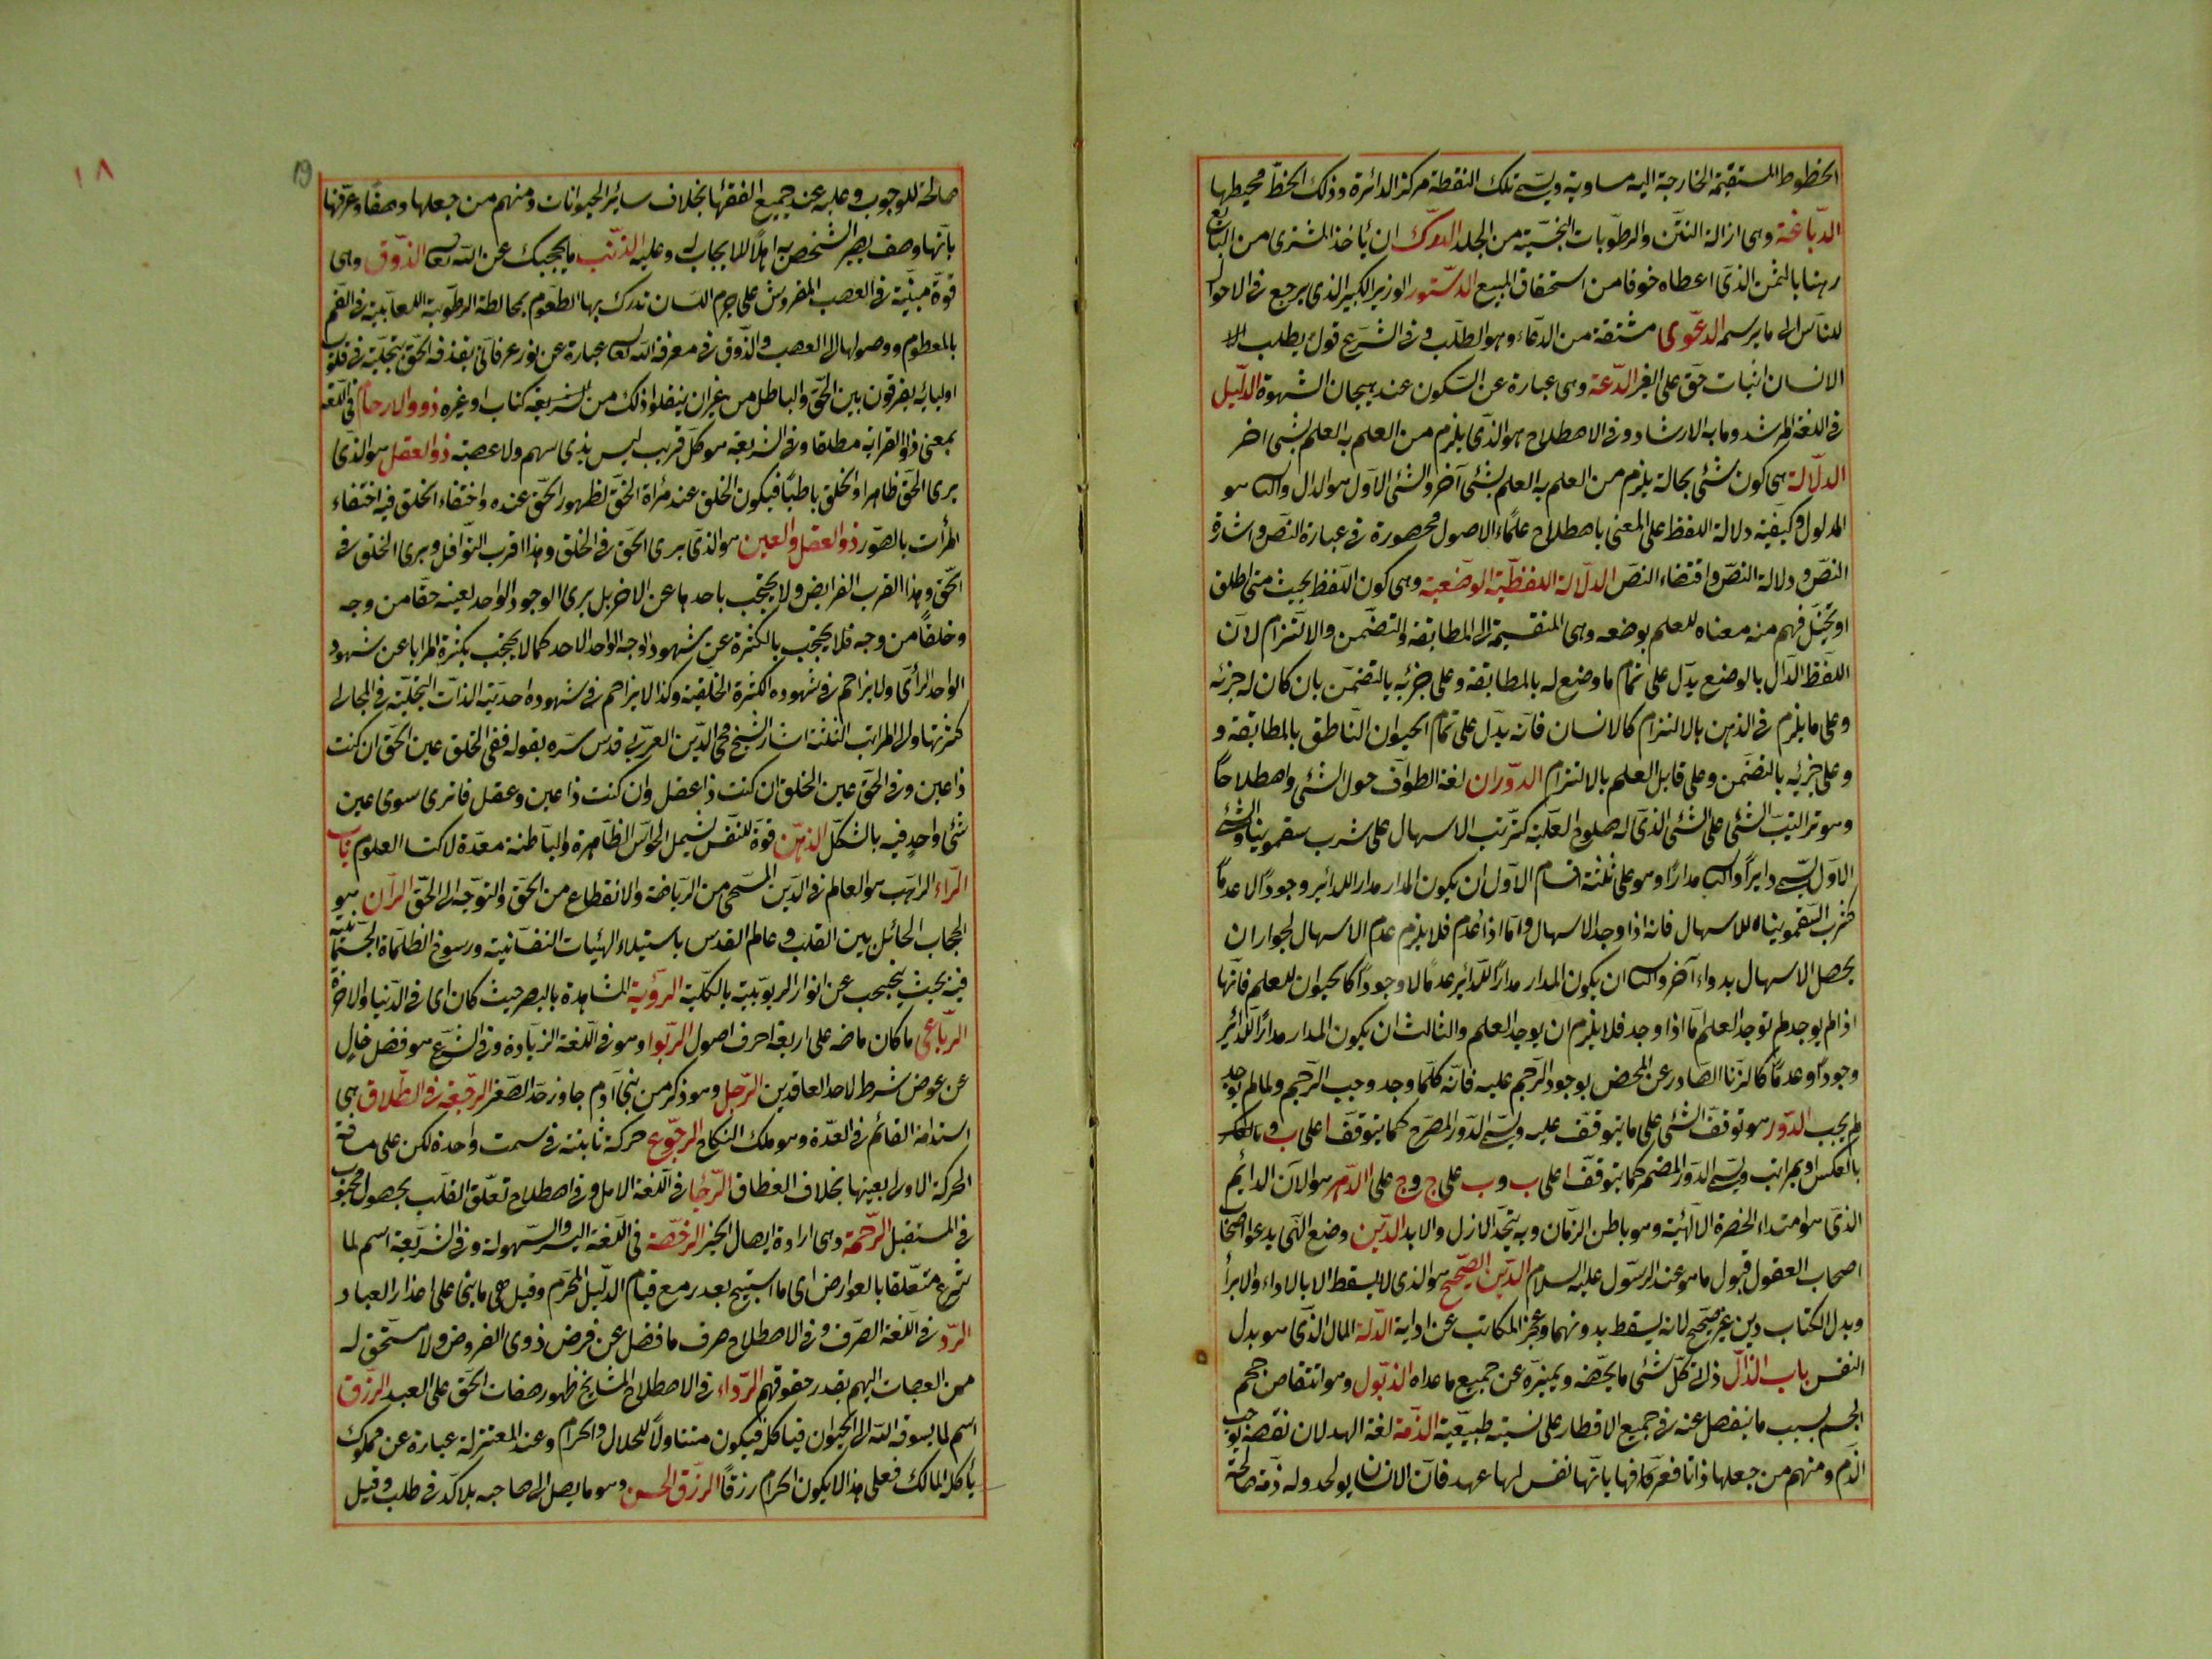 الخطوط المستقيمة الخارجة اليه مساوية ويسمى تلك النقطة مركز الدائرة وذلك الخط محيطها
الدباغة وهى ازالة النتن والرطوبات النجسية من الجلد الدرك ان يأخذ المشترى من البايع
رهنا بالثمن الذى اعطاه خوفا من استحقاق المبيع الدستور الوزير الكبير الذى يرجع فى الاحوال
للناس الى ما يرسمه الدعوى مشتقة من الدعاء وهو الطلب وفى الشرع قول يطلب به
الانسان اثبات حق على الغير الدعة وهى عبارة عن السكون عند هيجان الشهوة الدليل
فى اللغة المرشد وما به الارشاد وفى الاصطلاح هو الذى يلزم من العلم به العلم بشئ اخر
الدلالة هى كون شئ بحالة يلزم من العلم به العلم بشئ آخر والشئ الاول هو الدال والثانى هو
المدلول وكيفية دلالة اللفظ على المعنى باصطلاح علماء الاصول محصورة فى عبارة النص واشارة
النص ودلالة النص واقتضاء النص الدلالة اللفظية الوضعية وهى كون اللفظ بحيث متى اطلق
او تخيل فهم منه معناه للعلم بوضعه وهى المنقسمة الى المطابقة والتضمن والالتزام لان
اللفظ الدال بالوضع يدل على تمام ما وضع له بالمطابقة وعلى جزئه بالتضمن بان كان له جزئه
وعلى ما يلزم فى الذهن بالالتزام كالانسان فانه يدل على تمام الحيوان الناطق بالمطابقة و
وعلى جزئه بالتضمن وعلى قابل العلم بالالتزام الدوران لغة الطواف حول الشئ واصطلاحا
وهو ترتيب الشئ على الشئ الذى له صلوح العلية كترتب الاسهال على شرب سقمونيا والشئ
الاول يسمى دايرا والثانى مدارا وهو على ثلثة اقسام الاول ان يكون المدار مدار اللدائر وجودا لا عدما
كشرب السقمونياه للاسهال فانه اذا وجد الاسهال واما اذا عدم فلا يلزم عدم الاسهال لجواز ان
يحصل الاسهال بدواء آخر والثانى ان يكون المدار مدارا للدائر عدما لا وجودا كالحيوان للعلم فانها
اذا لم يوجد لم توجد العلم اما اذا وجد فلا يلزم ان يوجد العلم والثالث ان يكون المدار مدارا للدائر
وجودا وعدما كالزنا الصادر عن المحض بوجود الرجم عليه فانه كلما وجد وجب الرجم ولما لم يوجد
لم يجب الدور هو توقف الشئ على ما يتوقف عليه ويسمى الدور المصرح كما يتوقف ا على ب وبالعكس
بالعكس او بمراتب ويسمى الدور المضمر كما يتوقف ا على ب وب على ج وج على ا الدهر هو الآن الدائم
الذى هو امتداد الحضرة الالهية وهو باطن الزمان وبه يتحد الازل والابد الدين وضع الهى يدعو اصحاب
اصحاب العقول قبول ما هو عند الرسول عليه السلام الدين الصحيح هو الذى لا يسقط الا بالاداء والابرأ
وبدل الكتاب دين غير صحيح لانه يسقط بدونهما وعجز المكاتب عن ادايه الدية المال الذى هو بدل
النفس باب الذال ذات كل شئ ما يخصه ويميزه عن جميع ما عداه الذبول وهو انتقاص حجم
الجسم بسبب ما ينفصل عنه فى جميع الاقطار على نسبة طبيعية الذمة لغة العهد لان نقضه يوجب
الذم ومنهم من جعلها ذاتا فعرفها بانها نفس لها عهد فان الانسان يولد وله ذمة صالحة
صالحة للوجوب وعليه عند جميع الفقهاء بخلاف سائر الحيوانات ومنهم من جعلها وصفا وعرفها
بانها وصف يصير الشخص به اهلا للايجاب له وعليه الذنب ما يحجبك عن الله تعالى الذوق وهى
قوة مبنية فى العصب المفروش على جرم اللسان تدرك بها الطعوم بمخالطة الرطوبة اللعابية فى الفم
بالمطعوم ووصولها الى العصب والذوق فى معرفة الله تعالى عبارة عن نور عرفانى يقذفه الحق بتجلية فى قلوب
اوليائه يفرقون بين الحق والباطل من غير ان ينقلوا ذلك من الشريعة كتاب او غيره ذووالارحام فى اللغة
بمعنى ذو القرابة مطلقا وفى الشريعة هو كل قريب ليس بذى سهم ولا عصبة ذو العقل هو الذى
يرى الحق ظاهرا والخلق باطنا فيكون الخلق عنده مرأة الحق لظهور الحق عنده واختفاء الخلق فيه اختفاء
المرأت بالصور ذو العقل والعين هو الذى يرى الحق فى الخلق وهذا قرب النوافل ويرى الخلق فى
الحق وهذا القرب الفرايض ولا يحتجب باحدهما عن الاخر بل يرى الوجود الواحد لعينه حقا من وجه
وخلقا من وجه فلا يحتجب بالكثرة عن شهود الوجه الواحد الاحد كما لا يحتجب بكثرة المرايا عن شهود
الواحد الرأى ولا يزاحم فى شهوده الكثرة الخلقية وكذا لا يزاحم فى شهوده احدية الذات التجلية فى المجالى
كثرتها والى المراتب الثلثة اشار الشيخ محى الدين العربى قدس سره بقوله ففى الخلق عين الحق ان كنت
ذاعين وفى الحق عين الخلق ان كنت ذا عقل وان كنت ذا عين وعقل فما ترى سوى عين
شئ واحد فيه بالشكل الذهن قوة للنفس تشمل الحواس الظاهرة والباطنة معدة لاكتساب العلوم باب
الراء الراهب هو العالم فى الدين المسيحى من الرياضة والانقطاع من الخلق والتوجه الى الحق الران هو
الحجاب الحائل بين القلب وعالم القدس باستيلاء الهيئات النفسانية ورسوخ الظلماة الجسمانية
فيه بحيث يحجب عن انوار الربوبية بالكلية الرؤية المشاهدة بالبصر حيث كان اى فى الدنيا والاخرة
الرباعى ما كان ماضه على اربعة احرف اصول الربوا وهو فى اللغة الزيادة وفى الشرع هو فضل خال
عن عوض شرط لاحد العاقدين الرجل وهو ذكر من بنى آدم جاوز حد الصغر الرجعة فى الطلاق هى
استدامة القائم فى العدة وهو ملك النكاح الرجوع حركة ثابتة فى سمت واحدة لكن على مسافة
الحركة الاولى بعينها بخلاف الغطاف الرجا فى اللغة الامل وفى اصطلاح تعلق القلب بحصول محبوب
فى المستقبل الرحمة وهى ارادة ايصال الخير الرخصة فى اللغة اليسر والسهولة وفى الشريعة اسم لما
شرع متعلقا بالعوارض اى ما استبيح بعدر مع قيام الدليل المحرم وقيل هى ما بنى على اعذار العباد
الرد فى اللغة الصرف وفى الاصطلاح صرف ما فضل عن فرض ذوى الفروض ولا مستحق له
من العصبات اليهم بقدر حقوقهم الرداء فى الاصطلاح المشايخ ظهور صفات الحق على العبد الرزق
اسم لما يسوقه الله الى الحيوان فياكله فيكون متناولا للحلال والحرام وعند المعتزلة عبارة عن مملوك
يأكله المالك فعلى هذا لا يكون الحرام رزقا الرزق الحسن وهو ما يصل الى صاحبه بلا كد فى طلب وقيل
١٨
19